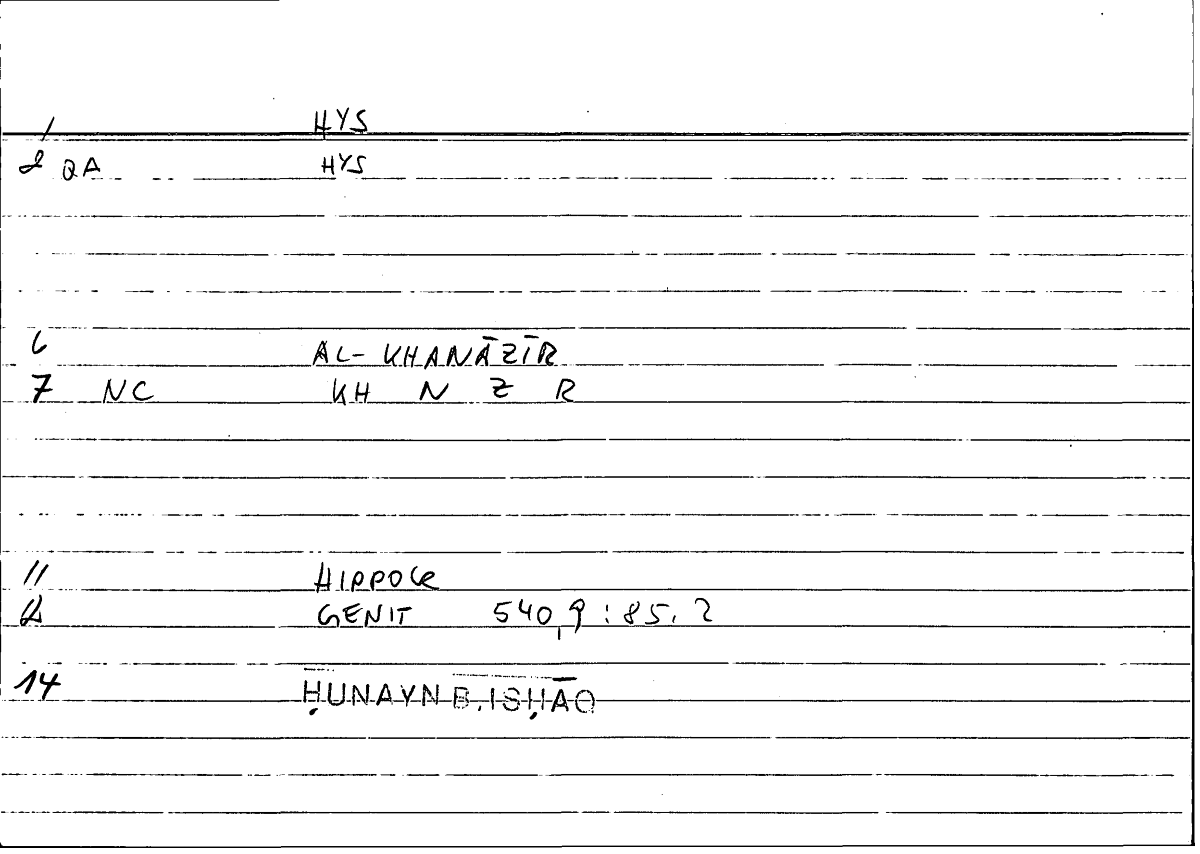 1 HYS
2 QA HYS
6 AL-KHANĀZĪR
7 NC KH N Z R
11 HIPPOCR
12 GENIT 540,9 : 85.2
14 ḤUNAYN B. ISḤĀQ